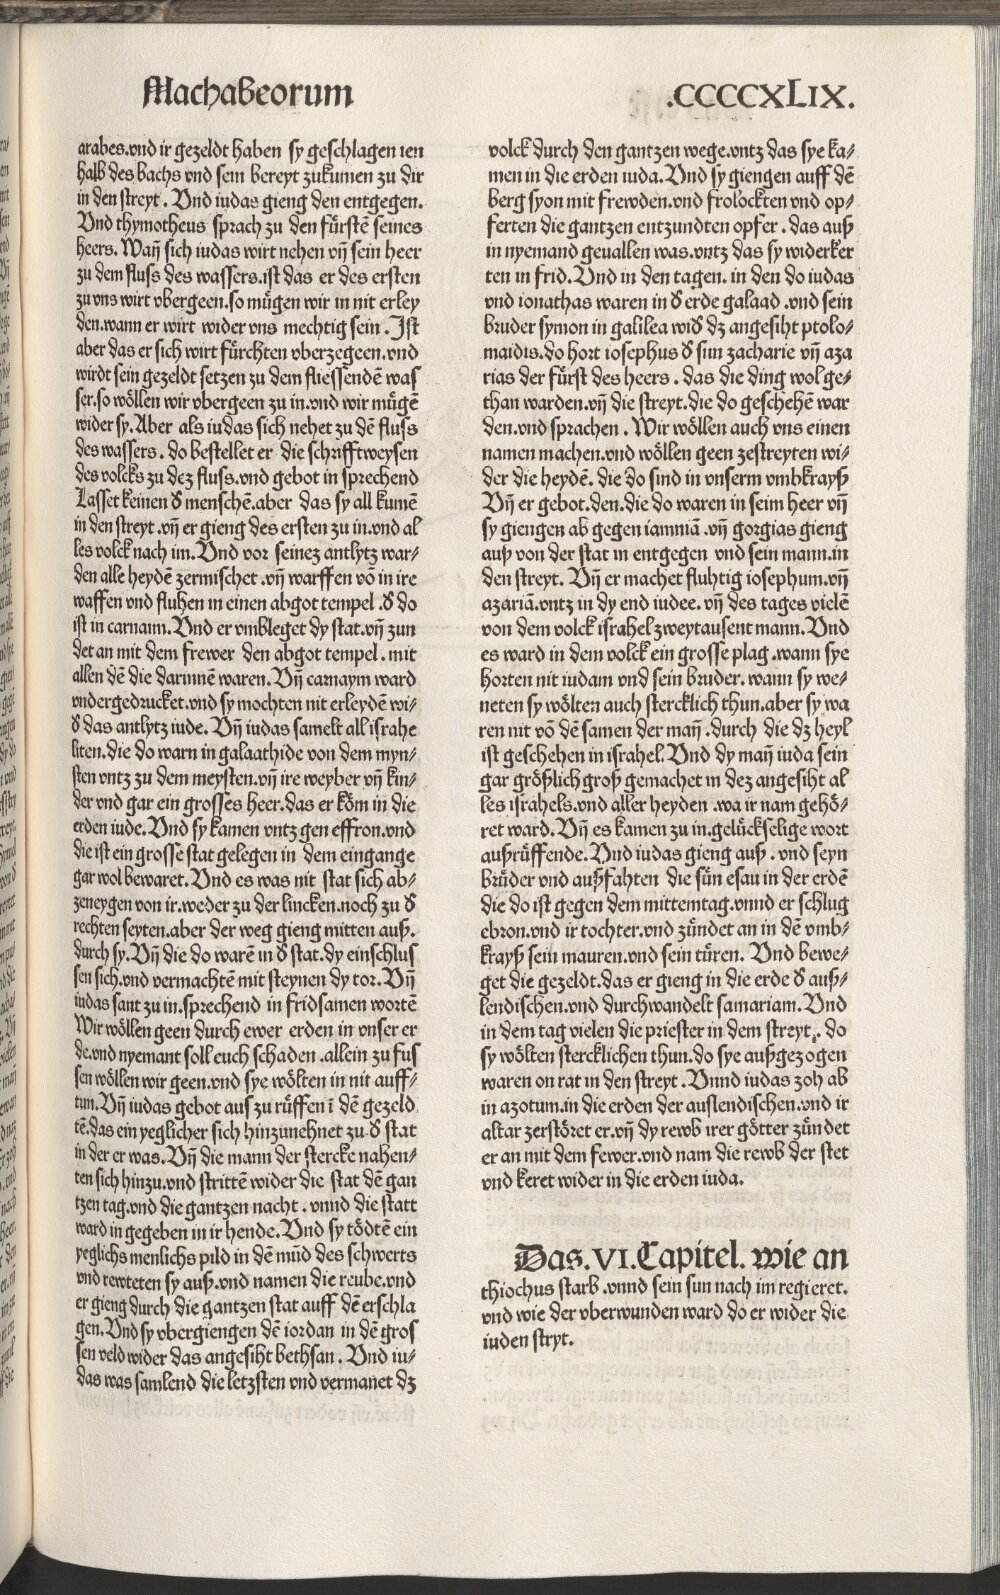 Machabeorum
.CCCCXLIX.
arabes.vnd ir gezeldt haben sy geschlagen ien
halb des bachs vnd sein bereyt zukumen zu dir
in den streyt . Vnd iudas gieng den entgegen.
Vnd thymotheus sprach zu den fürstē seines
heers. Wañ sich iudas wirt nehen vñ sein heer
zu dem fluss des wassers.ist das er des ersten
zu vns wirt vbergeen.so mügen wir in nit erley
den.wann er wirt wider vns mechtig sein . Ist
aber das er sich wirt fürchten vberzegeen.vnd
wirdt sein gezeldt setzen zu dem fliessendē was
ser.so wöllen wir vbergeen zu in.vnd wir mügē
wider sy. Aber als iudas sich nehet zu dē fluss
des wassers . do bestellet er die schrifftweysen
des volcks zu dez fluss.vnd gebot in sprechend
Lasset keinen d̕ menschē.aber das sy all kumē
in den streyt .vñ er gieng des ersten zu in.vnd al
les volck nach im. Vnd vor seinez antlytz war⸗
den alle heydē zermischet .vñ warffen vō in ire
waffen vnd fluhen in einen abgot tempel .d̕ do
ist in carnaim. Vnd er vmbleget dy stat.vñ zun
det an mit dem frewer den abgot tempel . mit
allen dē die darinnē waren. Vñ carnaym ward
vndergedrucket.vnd sy mochten nit erleydē wi⸗
d̕ das antlytz iude. Vñ iudas samelt all israhe
liten.die do warn in galaathide von dem myn⸗
sten vntz zu dem meysten.vñ ire weyber vñ kin⸗
der vnd gar ein grosses heer.das er kōm in die
erden iude. Vnd sy kamen vntz gen effron.vnd
die ist ein grosse stat gelegen in dem eingange
gar wol bewaret. Vnd es was nit stat sich ab⸗
zeneygen von ir.weder zu der lincken.noch zu d̕
rechten seyten.aber der weg gieng mitten auß.
durch sy. Vñ die do warē in d̕ stat.dy einschlus
sen sich.vnd vermachtē mit steynen dy tor. Vñ
iudas sant zu in.sprechend in fridsamen wortē
Wir wöllen geen durch ewer erden in vnser er
de.vnd nyemant soll euch schaden .allein zu fus
sen wöllen wir geen.vnd sye wölten in nit auff⸗
tun. Vñ iudas gebot aus zu rüffen ī dē gezeld
tē.das ein yeglicher sich hinzunehnet zu d̕ stat
in der er was. Vñ die mann der stercke nahen⸗
ten sich hinzu.vnd strittē wider die stat dē gan
tzen tag.vnd die gantzen nacht . vnnd die statt
ward in gegeben in ir hende. Vnd sy tödtē ein
yeglichs menlichs pild in dē mūd des schwerts
vnd rewteten sy auß.vnd namen die reube.vnd
er gieng durch die gantzen stat auff dē erschla
gen. Vnd sy vbergiengen dē iordan in dē gros
sen veld wider das angesiht bethsan . Vnd iu⸗
das was samlend die letzsten vnd vermanet dz
volck durch den gantzen wege.vntz das sye ka⸗
men in die erden iuda. Vnd sy giengen auff dē
berg syon mit frewden.vnd frolockten vnd op⸗
ferten die gantzen entzundten opfer . das auß
in nyemand geuallen was.vntz das sy widerker
ten in frid. Vnd in den tagen. in den do iudas
vnd ionathas waren in d̕ erde galaad .vnd sein
bruder symon in galilea wid̕ dz angesiht ptolo⸗
maidis.do hort iosephus d̕ sun zacharie vñ aza
rias der fürst des heers . das die ding wol ge⸗
than warden.vñ die streyt.die do geschehē war
den.vnd sprachen . Wir wöllen auch vns einen
namen machen.vnd wöllen geen zestreyten wi⸗
der die heydē. die do sind in vnserm vmbkrayß
Vñ er gebot.den.die do waren in seim heer vñ
sy giengen ab gegen iamniā .vñ gorgias gieng
auß von der stat in entgegen vnd sein mann.in
den streyt. Vñ er machet fluhtig iosephum.vñ
azariā.vntz in dy end iudee. vñ des tages vielē
von dem volck israhel zweytausent mann. Vnd
es ward in dem volck ein grosse plag .wann sye
horten nit iudam vnd sein bruder. wann sy we⸗
neten sy wölten auch stercklich thun.aber sy wa
ren nit vō dē samen der mañ .durch die dz heyl
ist geschehen in israhel. Vnd dy mañ iuda sein
gar größlich groß gemachet in dez angesiht al
les israhels.vnd aller heyden .wa ir nam gehö⸗
ret ward. Vñ es kamen zu in.gelückselige wort
außrüffende. Vnd iudas gieng auß . vnd seyn
brüder vnd außfahten die sün esau in der erdē
die do ist gegen dem mittemtag.vnnd er schlug
ebron.vnd ir tochter.vnd zündet an in dē vmb⸗
krayß sein mauren.vnd sein türen. Vnd bewe⸗
get die gezeldt.das er gieng in die erde d̕ auß⸗
lendischen.vnd durchwandelt samariam. Vnd
in dem tag vielen die priester in dem streyt . do
sy wölten stercklichen thun.do sye außgezogen
waren on rat in den streyt . Vnnd iudas zoh ab
in azotum.in die erden der auslendischen.vnd ir
altar zerstöret er.vñ dy rewb irer götter zündet
er an mit dem fewer.vnd nam die rewb der stet
vnd keret wider in die erden iuda.
Das. VI. Capitel. wie an
thiochus starb .vnnd sein sun nach im regieret.
vnd wie der vberwunden ward do er wider die
iuden stryt.